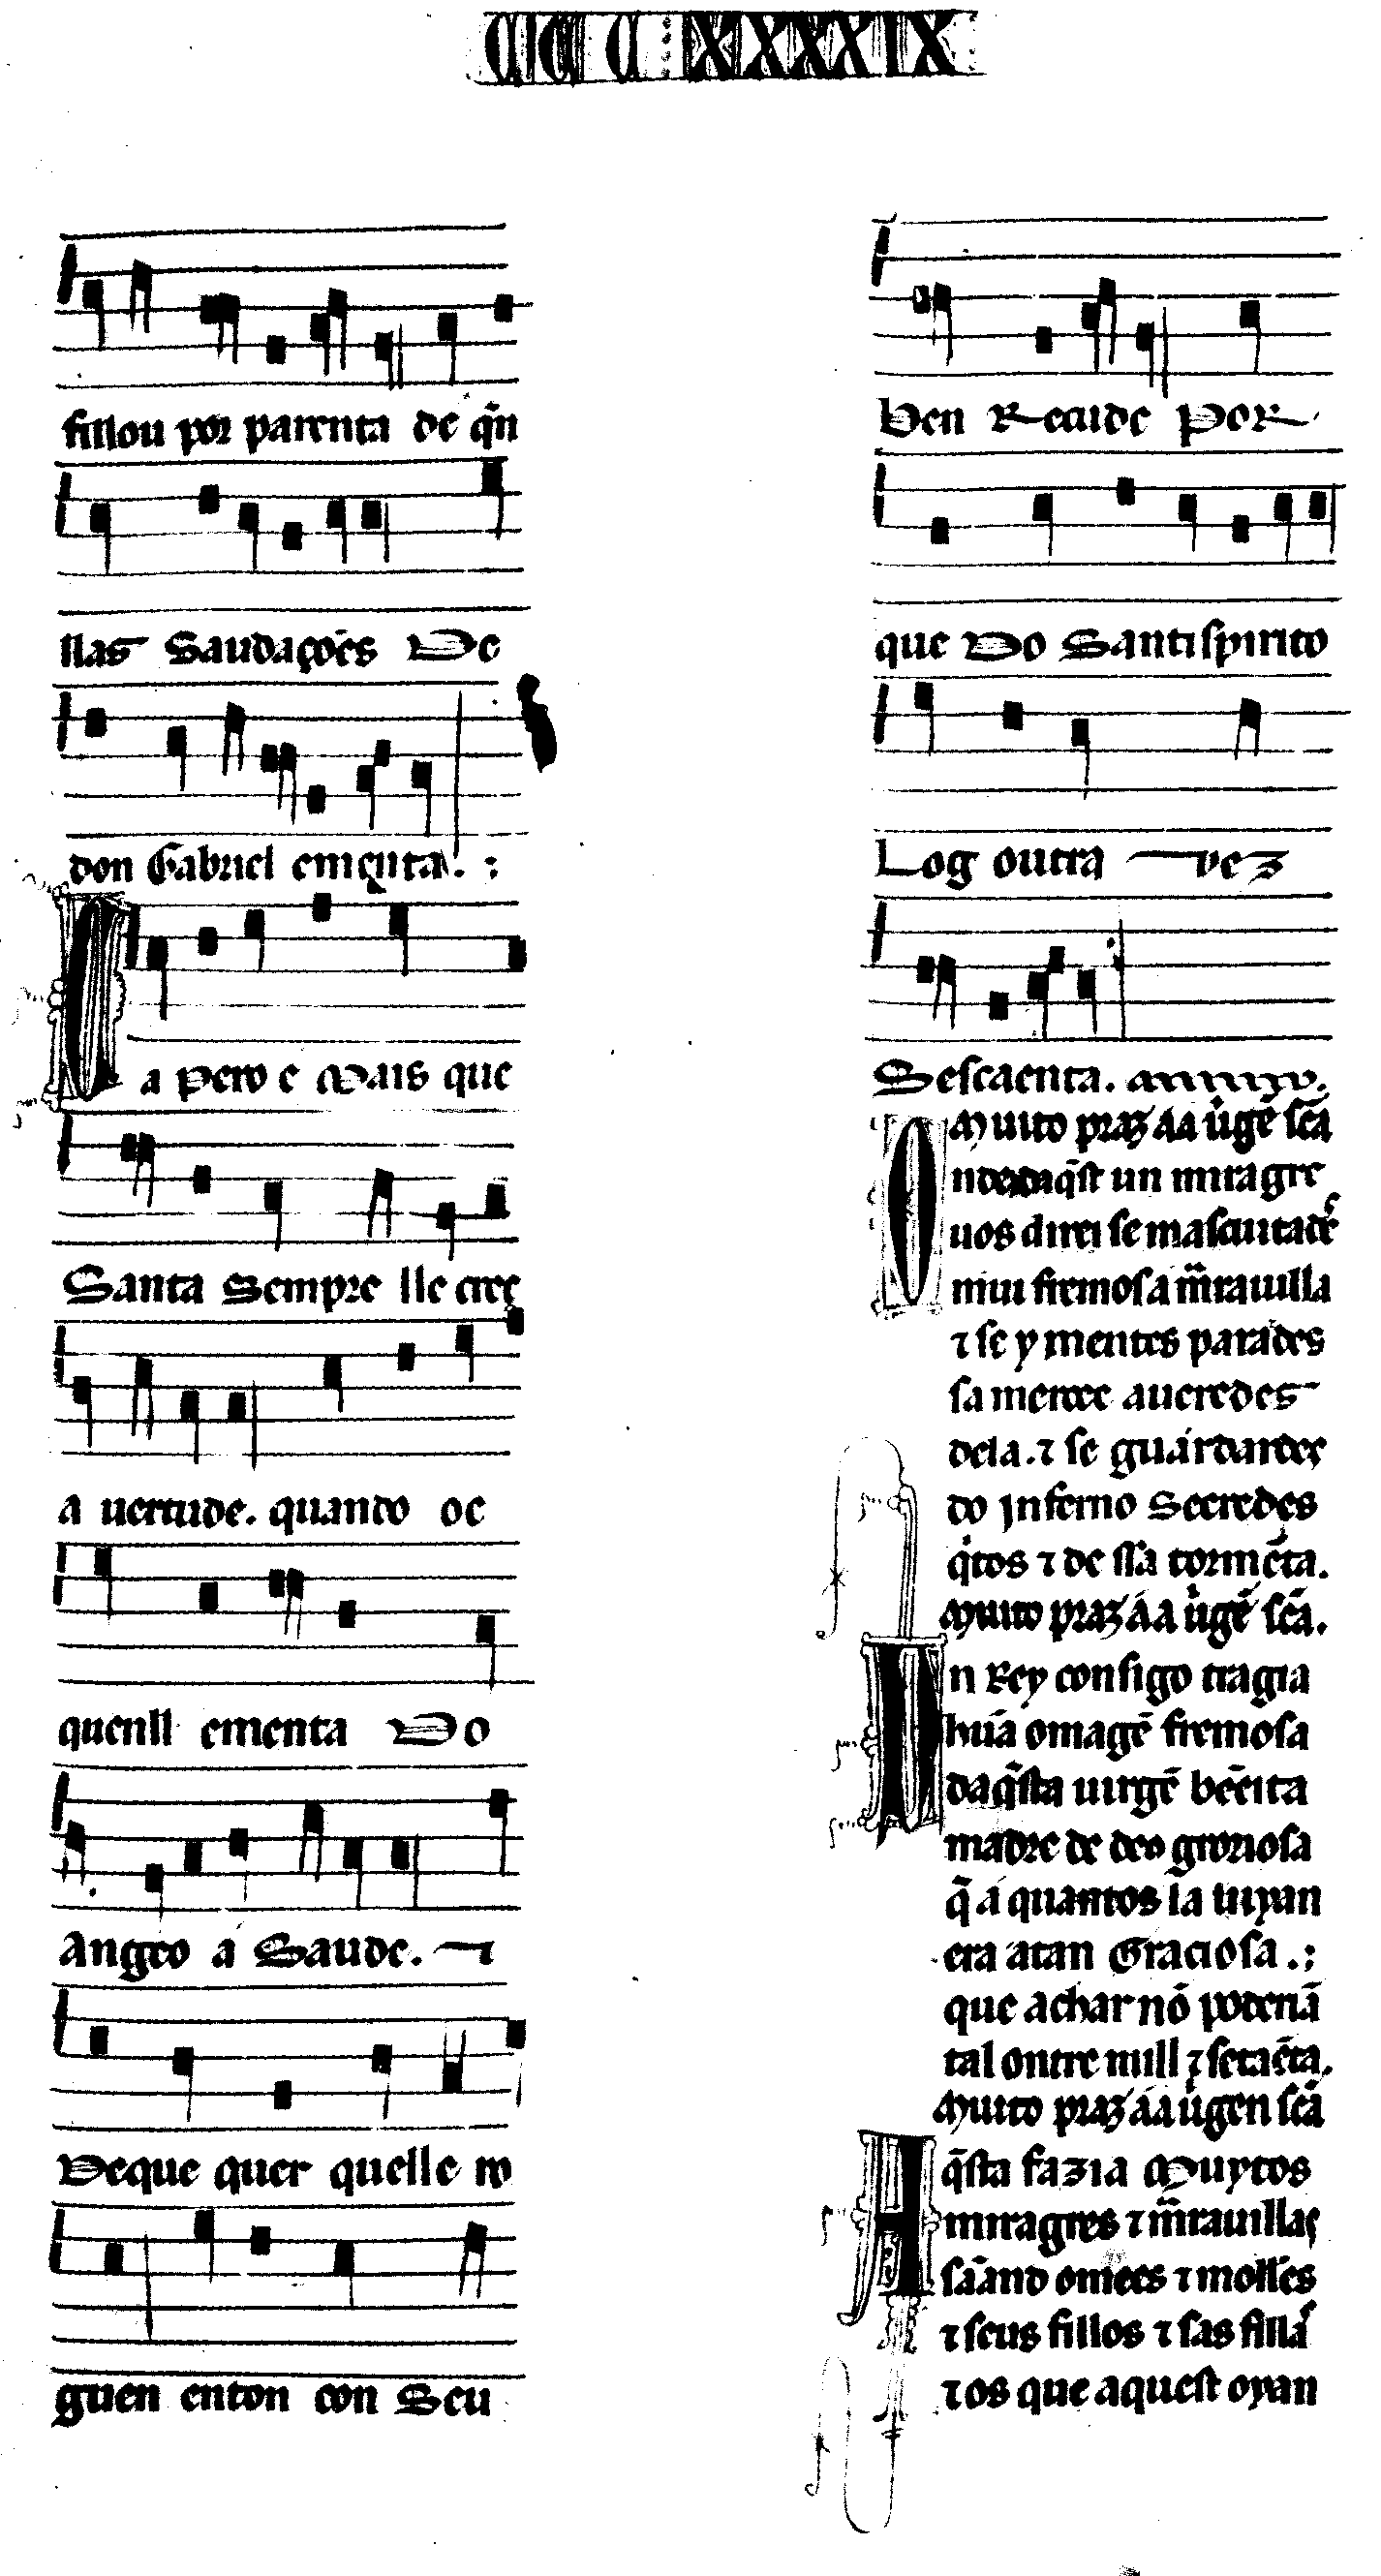 CCC XXXXIX
fillou por parenta de q̃n
llas Saudações De
don Gabriel ementa. :
a pero e Mais que
Santa Sempre lle cree
a uertude. quando oe
quenll ementa Do
angeo á Saude. ⁊
Deque quer quelle ro
guen enton con Seu
Ben Recude Por
que Do Santispirito
Log outra vez
Sescaenta.
Muito praz áá uirgẽ sc̃a
uos direi se mascuitardes
mui fremosa m̃rauilla
⁊ se y mentes parades
sa mercee aueredes
dela. ⁊ se guardardes
do jnferno Seeredes
q̃tos ⁊ de ssa tormẽta.
Muito praz áá uirgẽ sc̃a.
Un Rey consigo tragia
hũa omagẽ fremosa
daq̃sta uirgẽ bẽeita
madre de deo groriosa
q̃ á quantos la uiyan
era atan Graciosa .:
que achar nõ poderiã
tal ontre mill ⁊ setaẽta.
Muito praz áá uirgen sc̃a
Aq̃sta fazia Muytos
miragres ⁊ m̃rauillas
sãand omẽes ⁊ moll̃es
⁊ seus fillos ⁊ sas fillas
⁊ os que aquest oyan